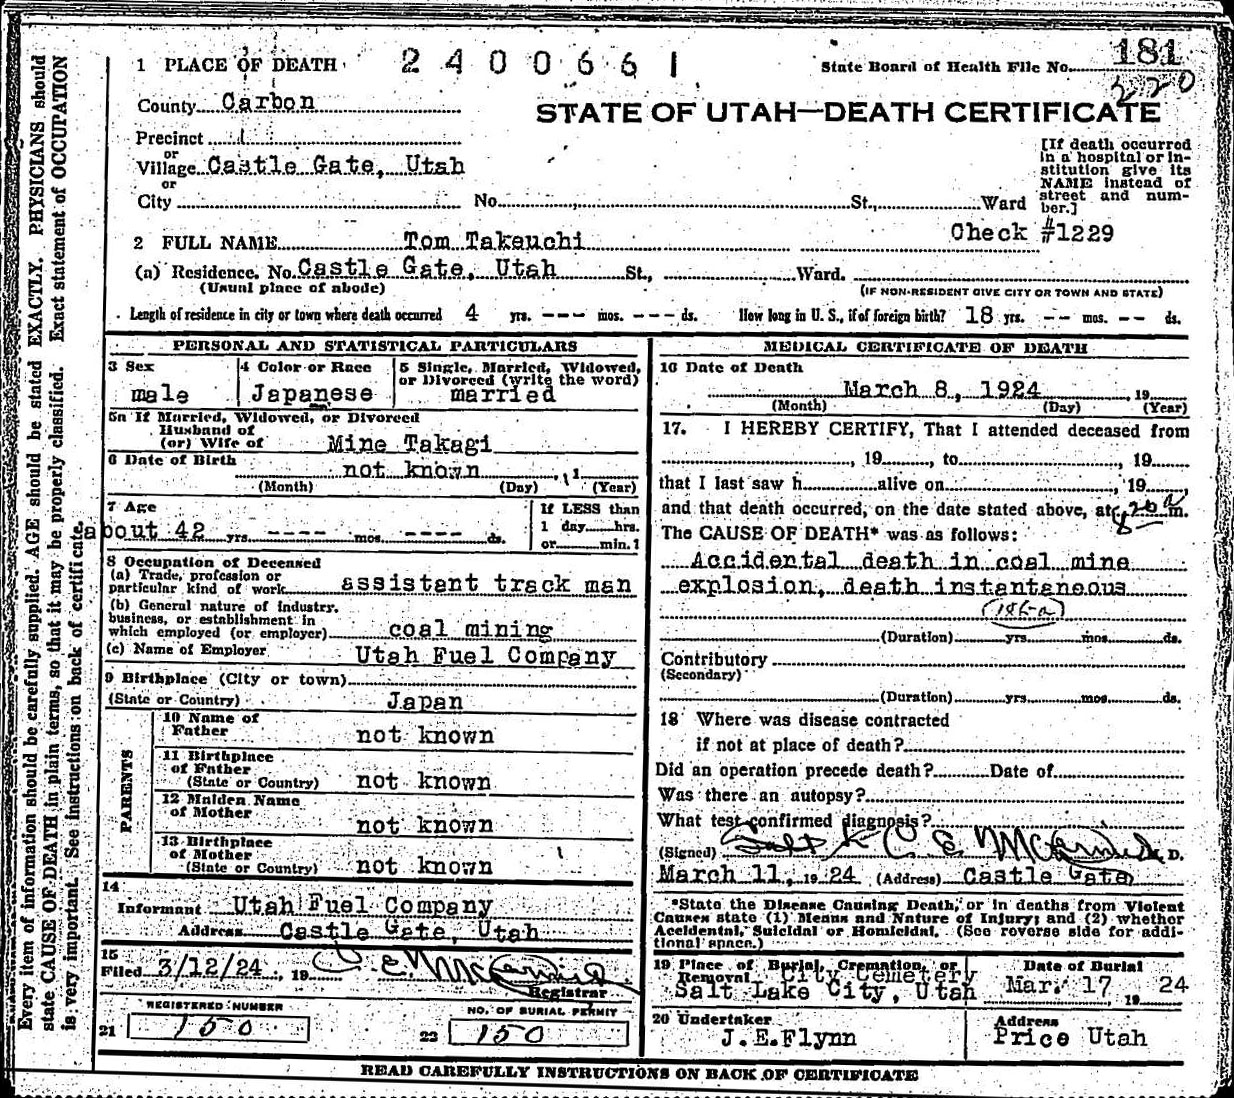 1 PLACE OF DEATH 2400661 State Board of Health File No. 181
220
County Carbon
STATE OF UTAH—DEATH CERTIFICATE
Precinct
or
Village Castle Gate, Utah
or
City No. St., Ward
[If death occurred in a hospital or institution give its NAME instead of street and number.]
2 FULL NAME Tom Takeuchi Check #1229
(a) Residence. No. Castle Gate, Utah St., Ward.
(Usual place of abode) (IF NON-RESIDENT GIVE CITY OR TOWN AND STATE)
Length of residence in city or town where death occurred 4 yrs. --- mos. --- ds. How long in U. S., if of foreign birth? 18 yrs. -- mos. -- ds.
PERSONAL AND STATISTICAL PARTICULARS
3 Sex
male
4 Color or Race
Japanese
5 Single, Married, Widowed, or Divorced (write the word)
married
5a If Married, Widowed, or Divorced
Husband of
(or) Wife of Mine Takagi
6 Date of Birth not known , 1
(Month) (Day) (Year)
7 Age
about 42 yrs. ---- mos. ---- ds.
If LESS than
1 day hrs.
or min.?
8 Occupation of Deceased
(a) Trade, profession or
particular kind of work assistant track man
(b) General nature of industry,
business, or establishment in
which employed (or employer) coal mining
(c) Name of Employer Utah Fuel Company
9 Birthplace (City or town)
(State or Country) Japan
PARENTS
10 Name of
Father not known
11 Birthplace
of Father
(State or Country) not known
12 Maiden Name
of Mother not known
13 Birthplace
of Mother
(State or Country) not known
14
Informant Utah Fuel Company
Address Castle Gate, Utah
15
Filed 3/12/24, 19 C. E. McDermid
Registrar
REGISTERED NUMBER
21 150
NO. OF BURIAL PERMIT
22 150
MEDICAL CERTIFICATE OF DEATH
16 Date of Death
March 8, 1924, 19
(Month) (Day) (Year)
17. I HEREBY CERTIFY, That I attended deceased from
, 19 , to , 19
that I last saw h alive on , 19
and that death occurred, on the date stated above, at 8 20 a m.
The CAUSE OF DEATH* was as follows:
Accidental death in coal mine
explosion, death instantaneous
186-a
(Duration) yrs. mos. ds.
Contributory
(Secondary)
(Duration) yrs. mos. ds.
18 Where was disease contracted
if not at place of death?
Did an operation precede death? Date of
Was there an autopsy?
What test confirmed diagnosis?
(Signed) C E McDermid M. D.
March 11, 19 24 (Address) Castle Gate
*State the Disease Causing Death, or in deaths from Violent
Causes state (1) Means and Nature of Injury; and (2) whether
Accidental, Suicidal or Homicidal. (See reverse side for addi-
tional space.)
19 Place of Burial, Cremation, or
Removal City Cemetery
Salt Lake City, Utah
Date of Burial
Mar. 17 19 24
20 Undertaker
J.E.Flynn
Address
Price Utah
READ CAREFULLY INSTRUCTIONS ON BACK OF CERTIFICATE
Every item of information should be carefully supplied. AGE should be stated EXACTLY. PHYSICIANS should
state CAUSE OF DEATH in plain terms, so that it may be properly classified. Exact statement of OCCUPATION
is very important. See instructions on back of certificate.